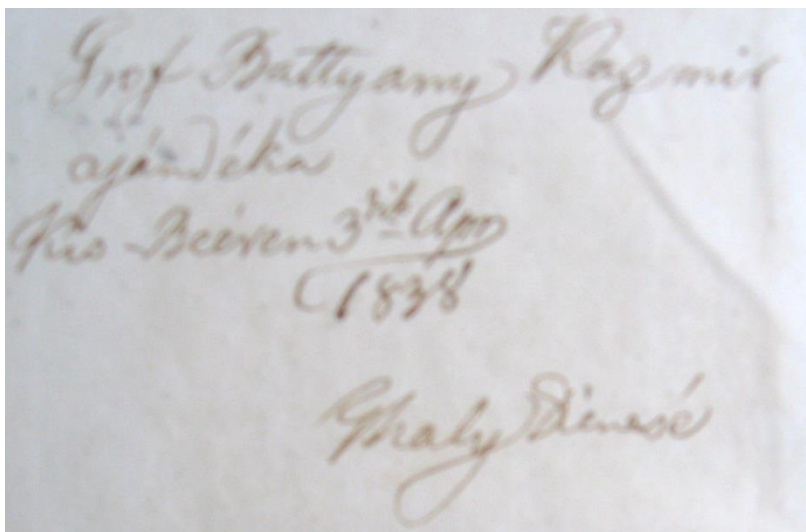 Grof Battyany Kazmir
ajándéka
Kis Beéren 3dik Apr
1838
Ghaly Dienesé